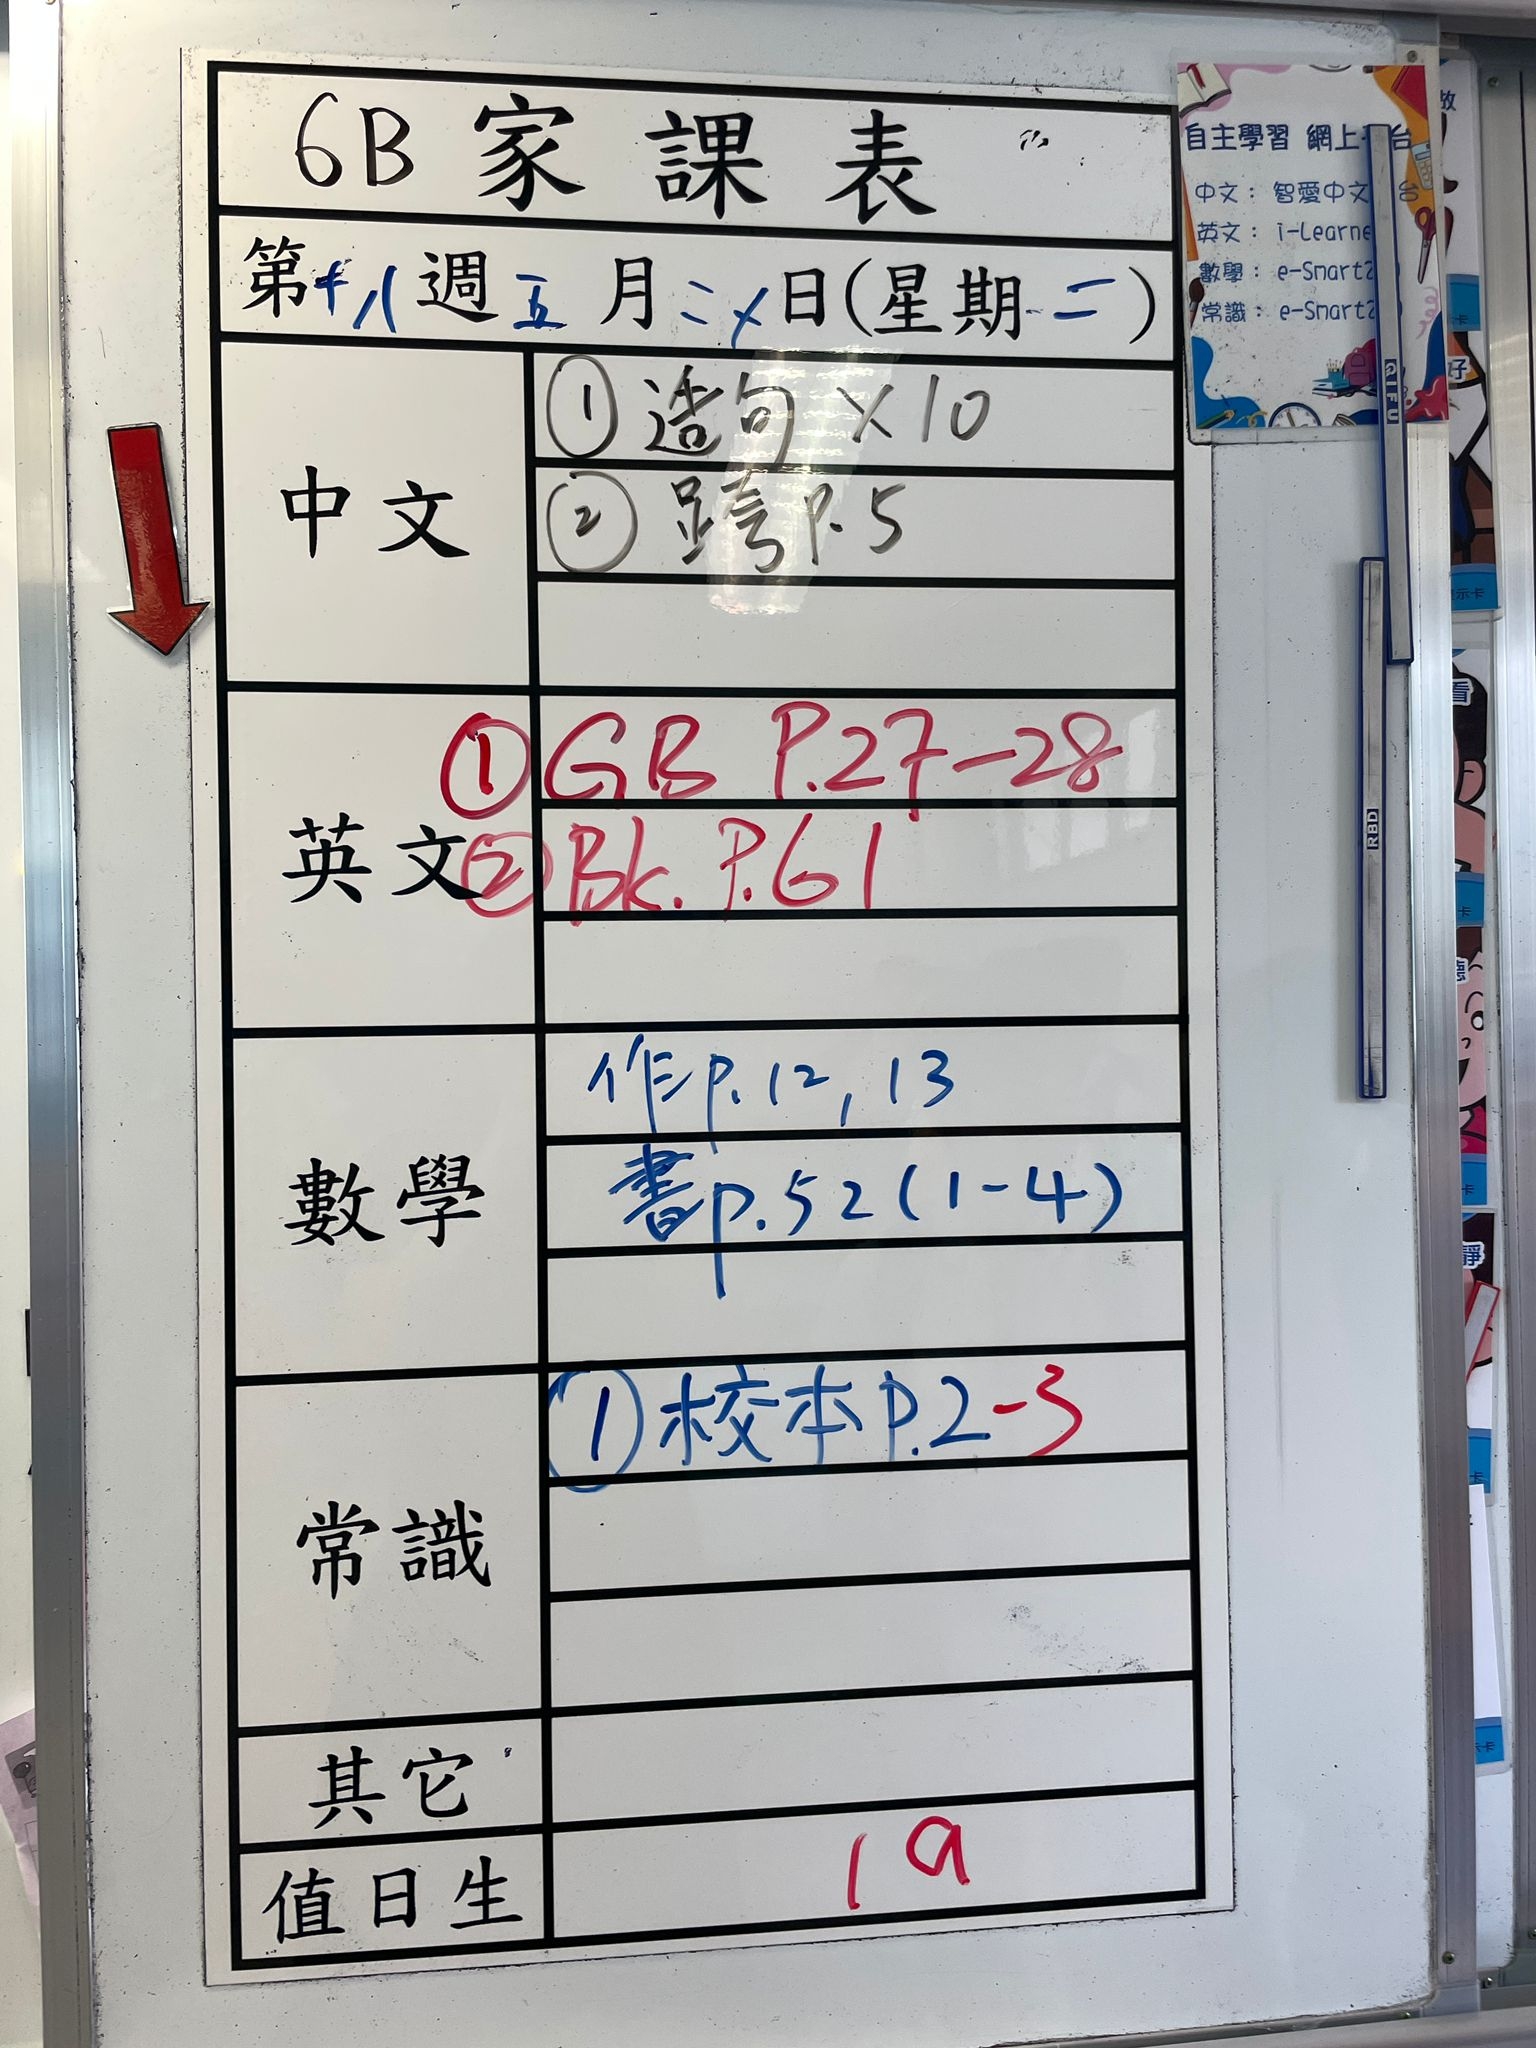 6B 家課表
第十八週五月二 日(星期二)
中文
① 造句 × 10
② 跨 P.5
英文
① GB P.27-28
② Bk. P.61
數學
作 p.12, 13
書 p.52 (1-4)
常識
① 校本 P.2-3
其它
值日生
19
自主學習 網上 台
中文： 智愛中文
英文： i-Learne
數學： e-Smart2
常識： e-Smart2
QIFU
RBD
好
示卡
看
卡
靜
示卡